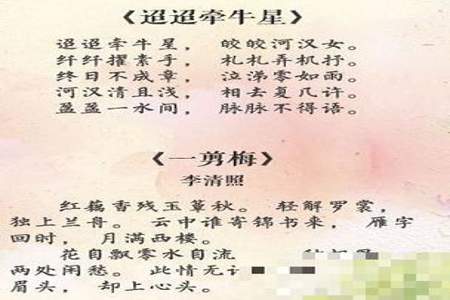 《迢迢牵牛星》
迢迢牵牛星， 皎皎河汉女。
纤纤擢素手， 札札弄机杼。
终日不成章， 泣涕零如雨。
河汉清且浅， 相去复几许。
盈盈一水间， 脉脉不得语。
《一剪梅》
李清照
红藕香残玉簟秋。 轻解罗裳，
独上兰舟。 云中谁寄锦书来， 雁字
回时， 月满西楼。
花自飘零水自流
两处闲愁。 此情无
眉头， 却上心头。